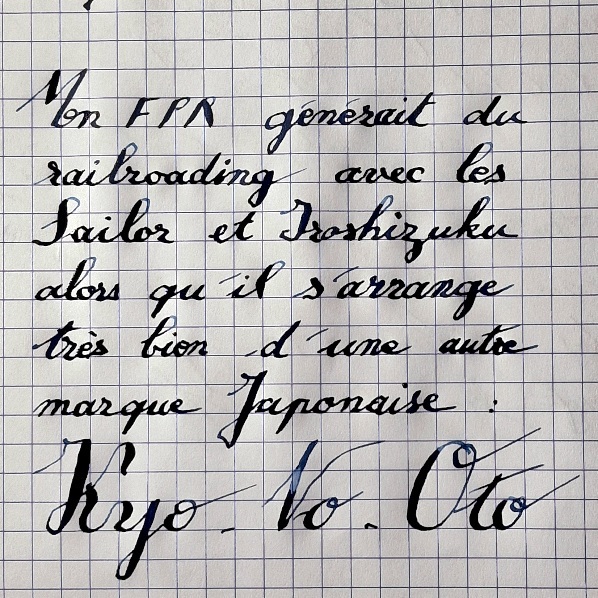 Mon FPR générait du
railroading avec les
Sailor et Iroshizuku
alors qu'il s'arrange
très bien d'une autre
marque Japonaise :
Kyo - No - Oto